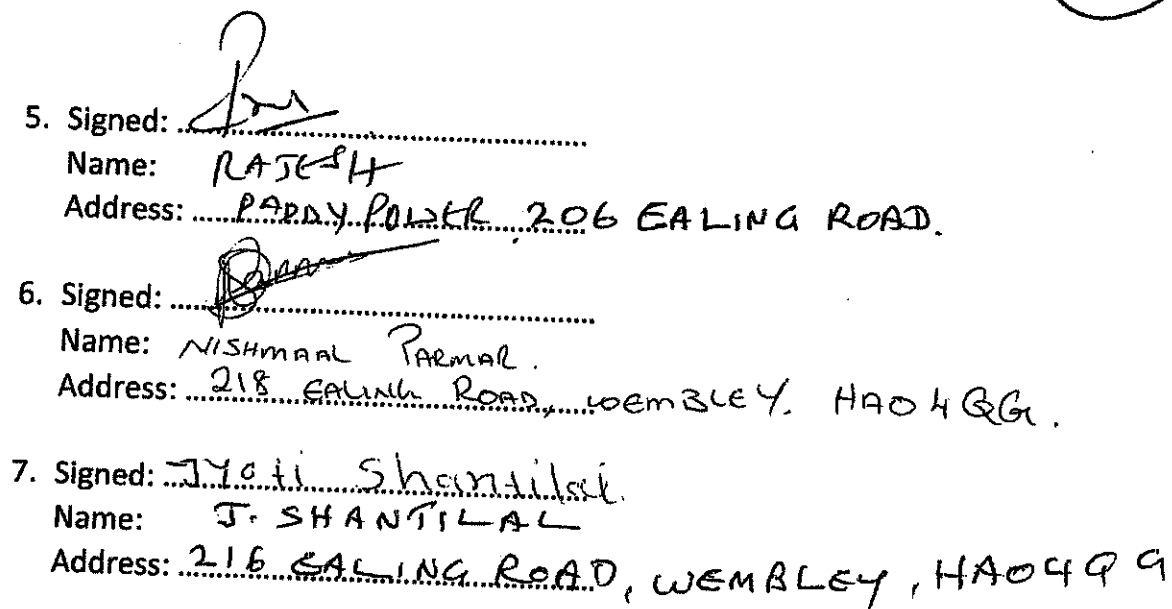 5. Signed:
Name: RAJESH
Address: PADDY POWER 206 EALING ROAD.
6. Signed:
Name: NISHMAAL PARMAR.
Address: 218 EALING ROAD, WEMBLEY. HA0 4QG.
7. Signed: Jyoti Shantilal.
Name: J. SHANTILAL
Address: 216 EALING ROAD, WEMBLEY, HA04QG